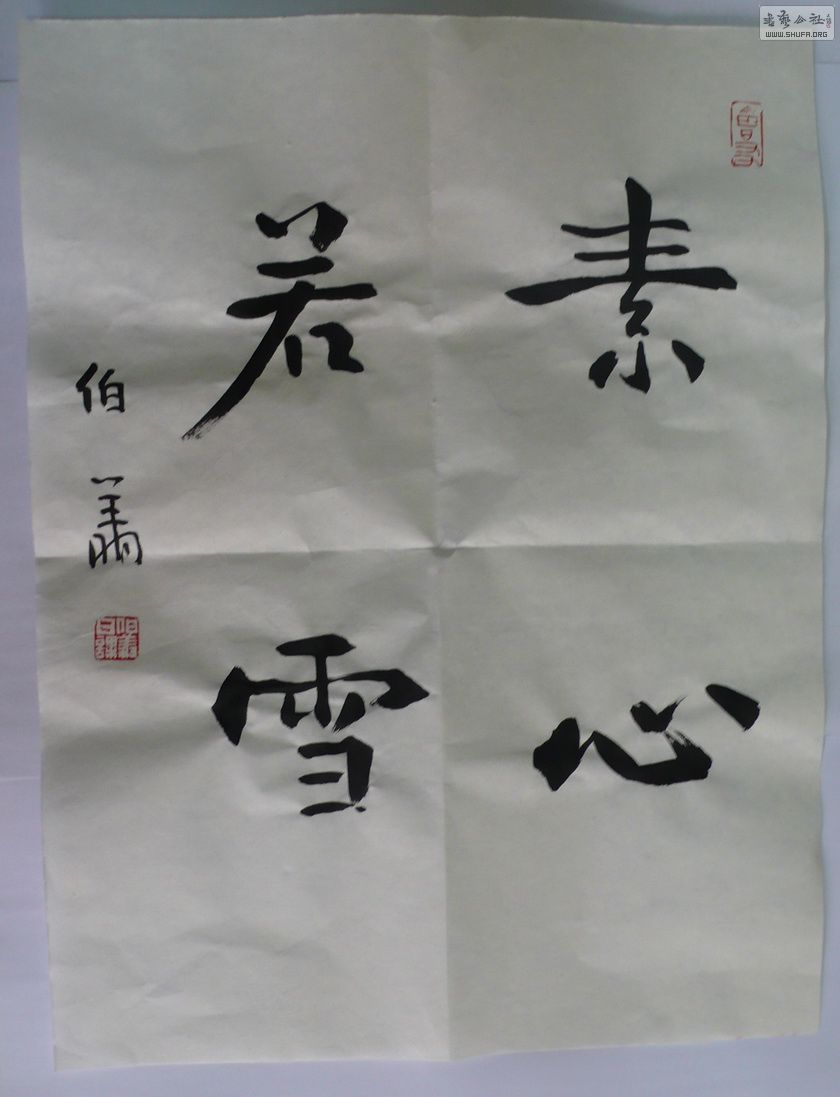 素心
若雪
伯萧
书艺公社
WWW.SHUFA.ORG